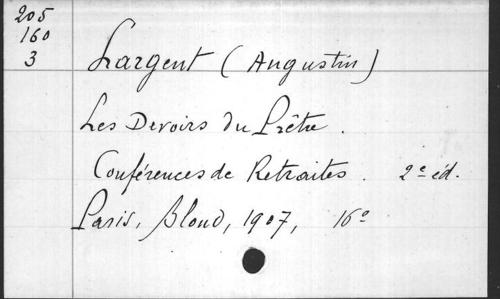 205
160
3
Largent (Augustin)
Les Devoirs du Prêtre.
Conférences de Retraites. 2e éd.
Paris, Bloud, 1907, 16o